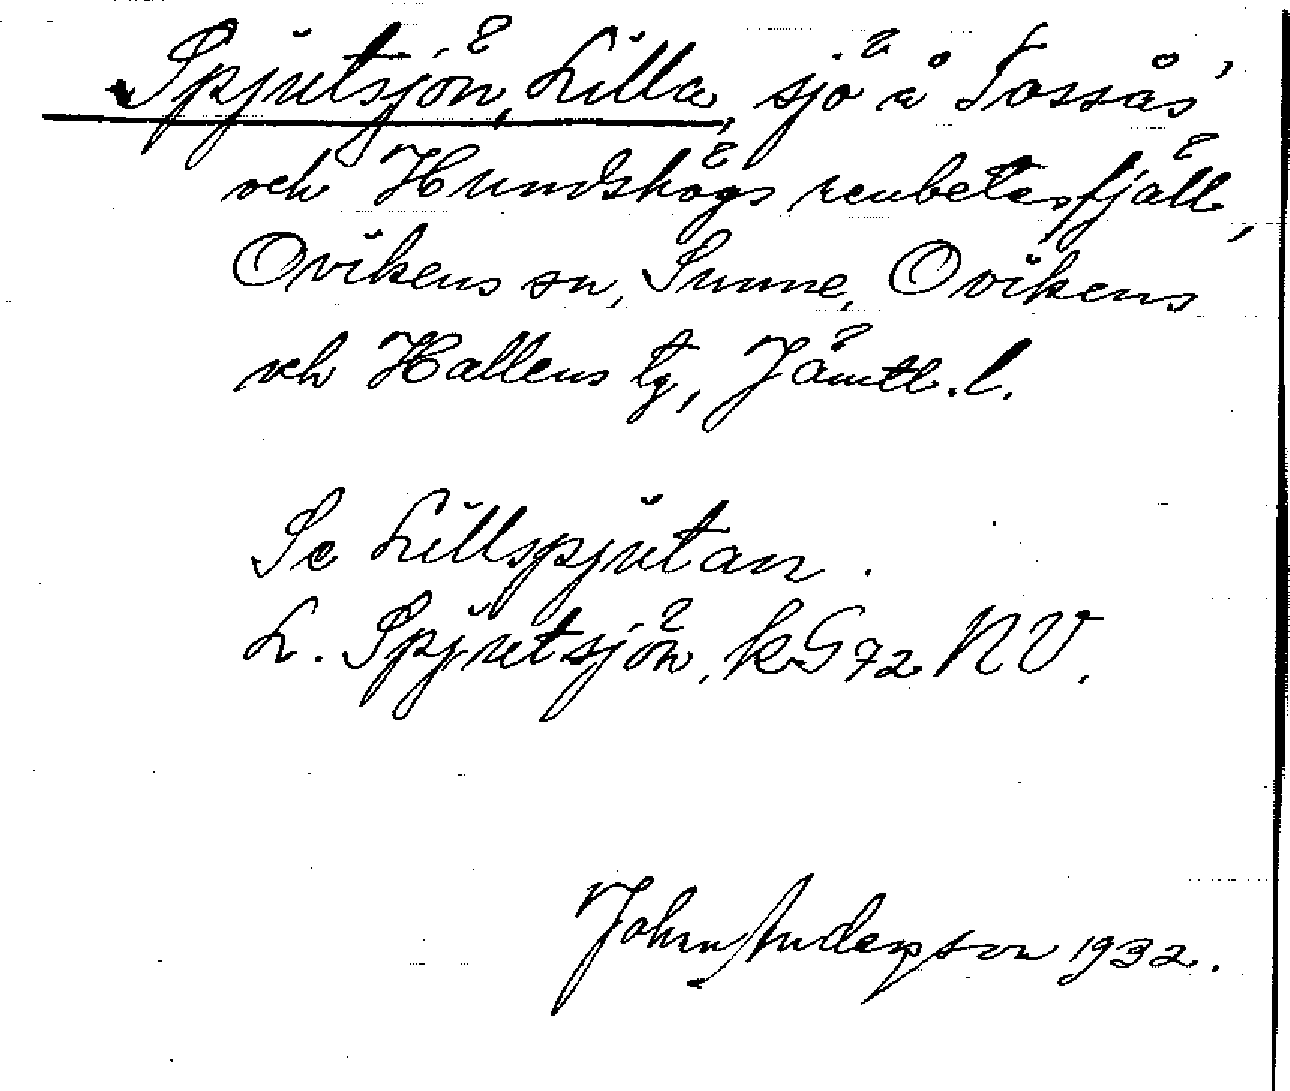 Spjutsjön, Lilla, sjö å Tossås
och Hundshögs renbetesfjäll,
Ovikens sn, Sunne, Ovikens
och Hallens tg, Jämtl. l.
Se Lillspjutan.
L. Spjutsjön, kG72 NV.
John Anderson 1932.